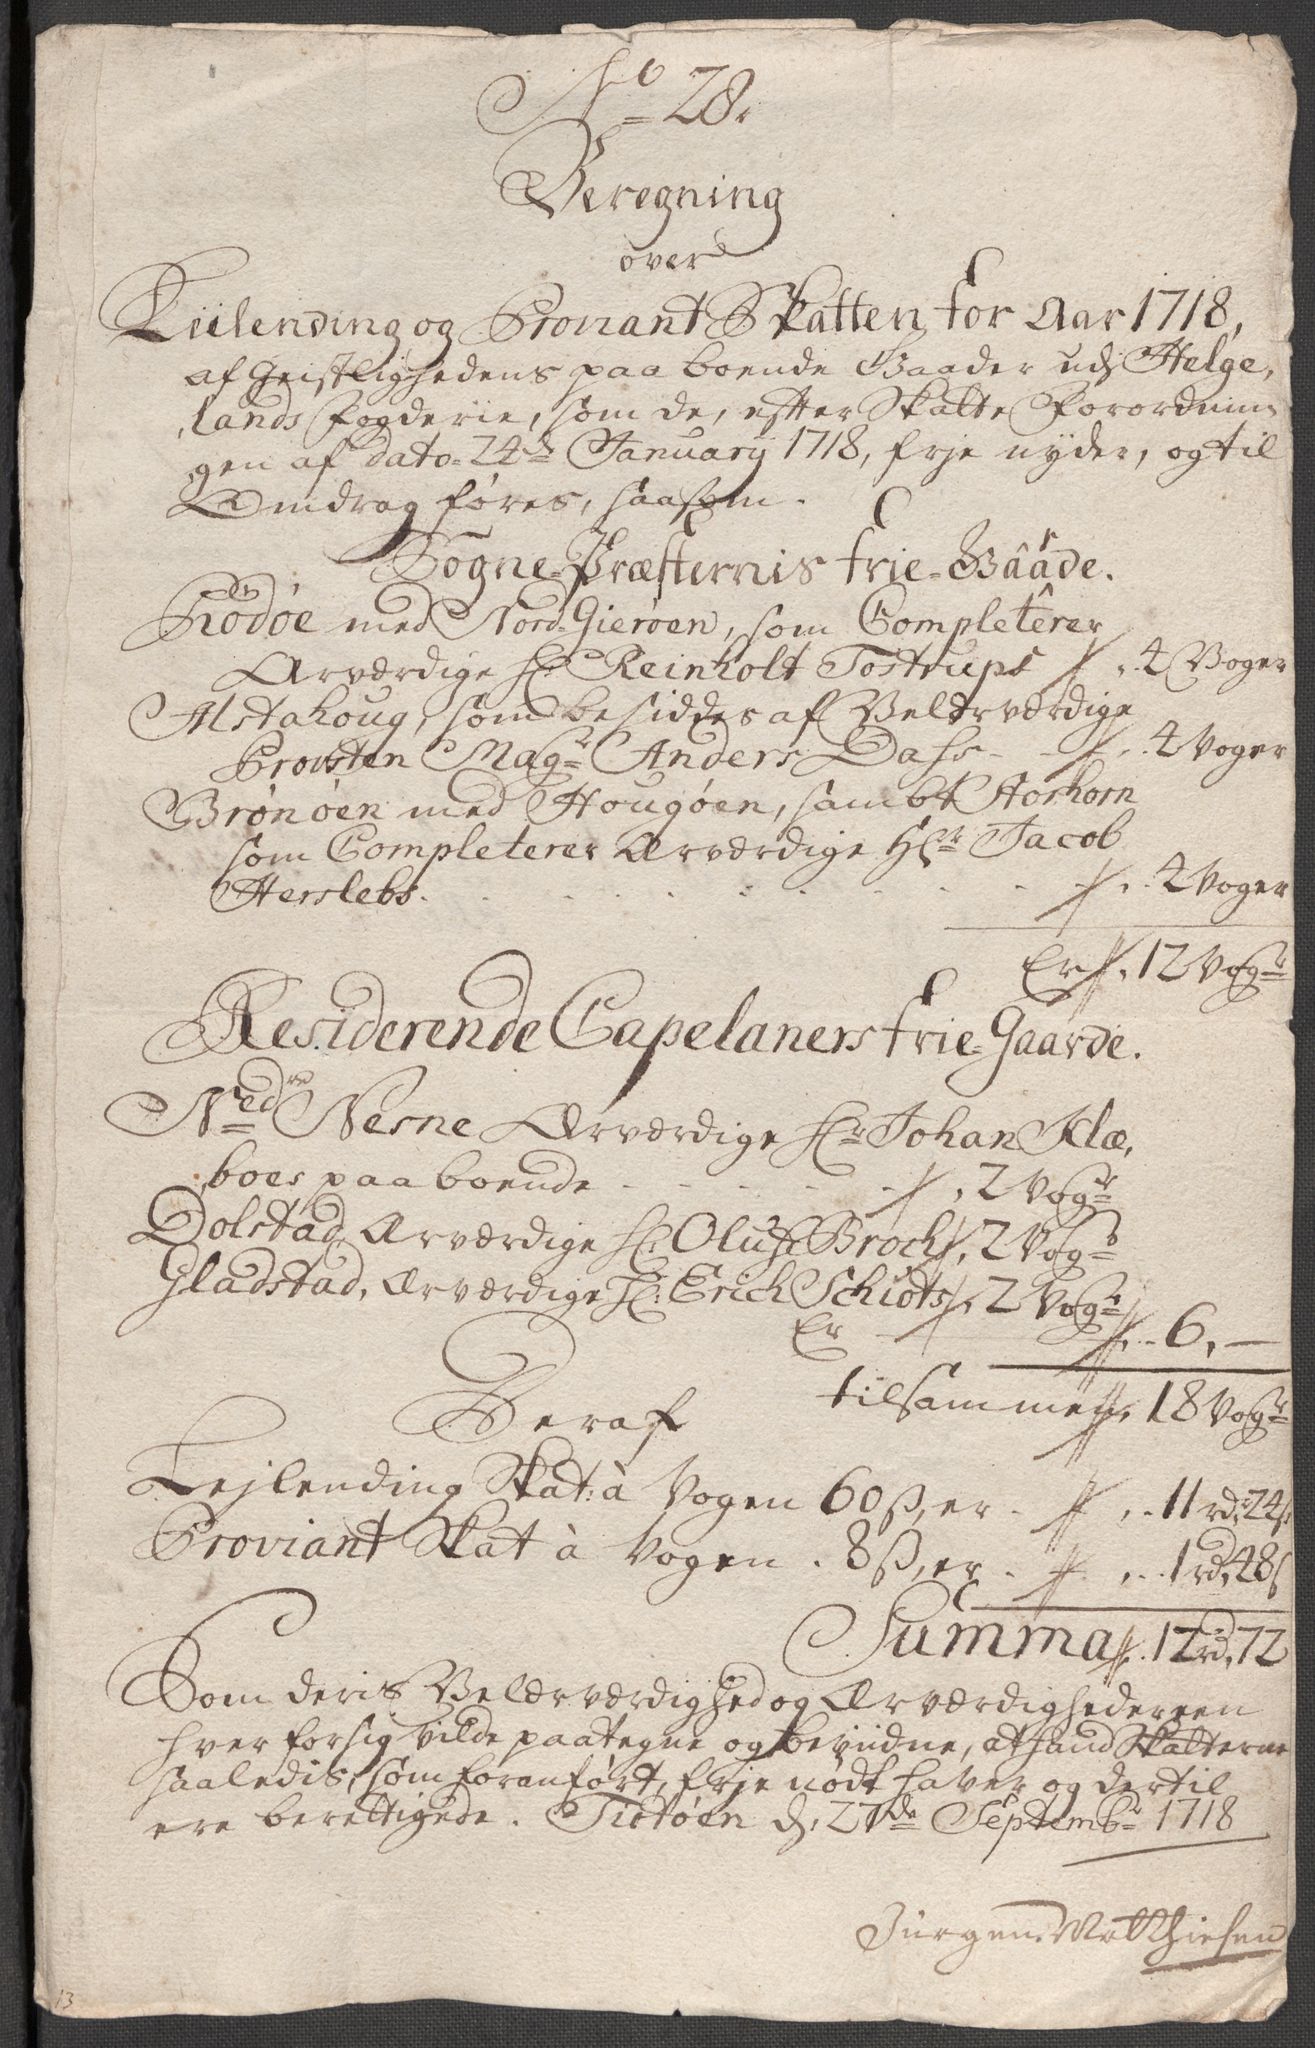 No 28.
Beregning
over
Leilending og Proviant Skatten for Aar 1718,
af Geistlighedens paaboende Gaarder udj Helge,
lands fogderie, som de, efter Skatte Forordnin,
gen af dato 24de January 1718, frje nyder, og til
Omdrag føres, saasom.
Sogne-Præsternis frie-Gaarde.
Rødøe med Nord Gierøen, som Completerer
Ærværdige Hr Reinholt Tostrups 4 Woger
Alstahoug, som besiddes af Velærværdige
Provsten Magr Anders Dass 4 Voger
Brønøen med Hougøen, sambt Horhorn
som Completerer Ærværdige Hr Jacob
Herslebs. 4 Voger
Er 12 Vogr
Residerende Capelaners frie-Gaarde.
Nedre Nesne Ærværdige Hr Johan Klæ,
boes paaboende 2 Vogr
Dolstad, Ærværdige Hr Oluf Broch, 2 Vogr
Gladstad, Ærværdige Hr Erich Schiøts, 2 Vogr
Er 6,—
tilsammen 18 Vogr
Deraf
Lejlending Skat: à Vogen 60 ß, er 11 rd 24 ß
Proviant Skat à Vogen 8 ß, er 1 rd, 48 ß
Summa 12 rd, 72
Som deris Velærværdighed og Ærværdigheder een
hver forsig vilde paategne og beviidne, at hand Skatterne
saaledis, som foranført, frje nødt haver og dertil
ere berettigede. Tiøtøen d. 27de Septembr 1718
Jürgen Matthiesen
13